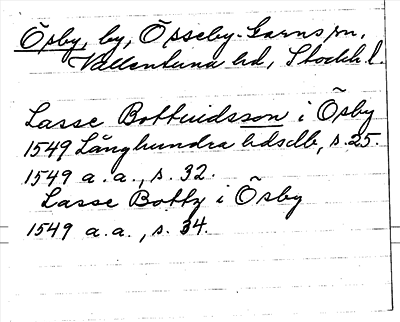 Õsby, by, Össeby-Garns sn,
Vallentuna hd, Stockh. l.
Lasse Bottuidsson i Õsby
1549 Långhundra hdsdb, s. 25.
1549 a. a., s. 32.
Lasse Botty i Õsby
1549 a. a., s. 34.